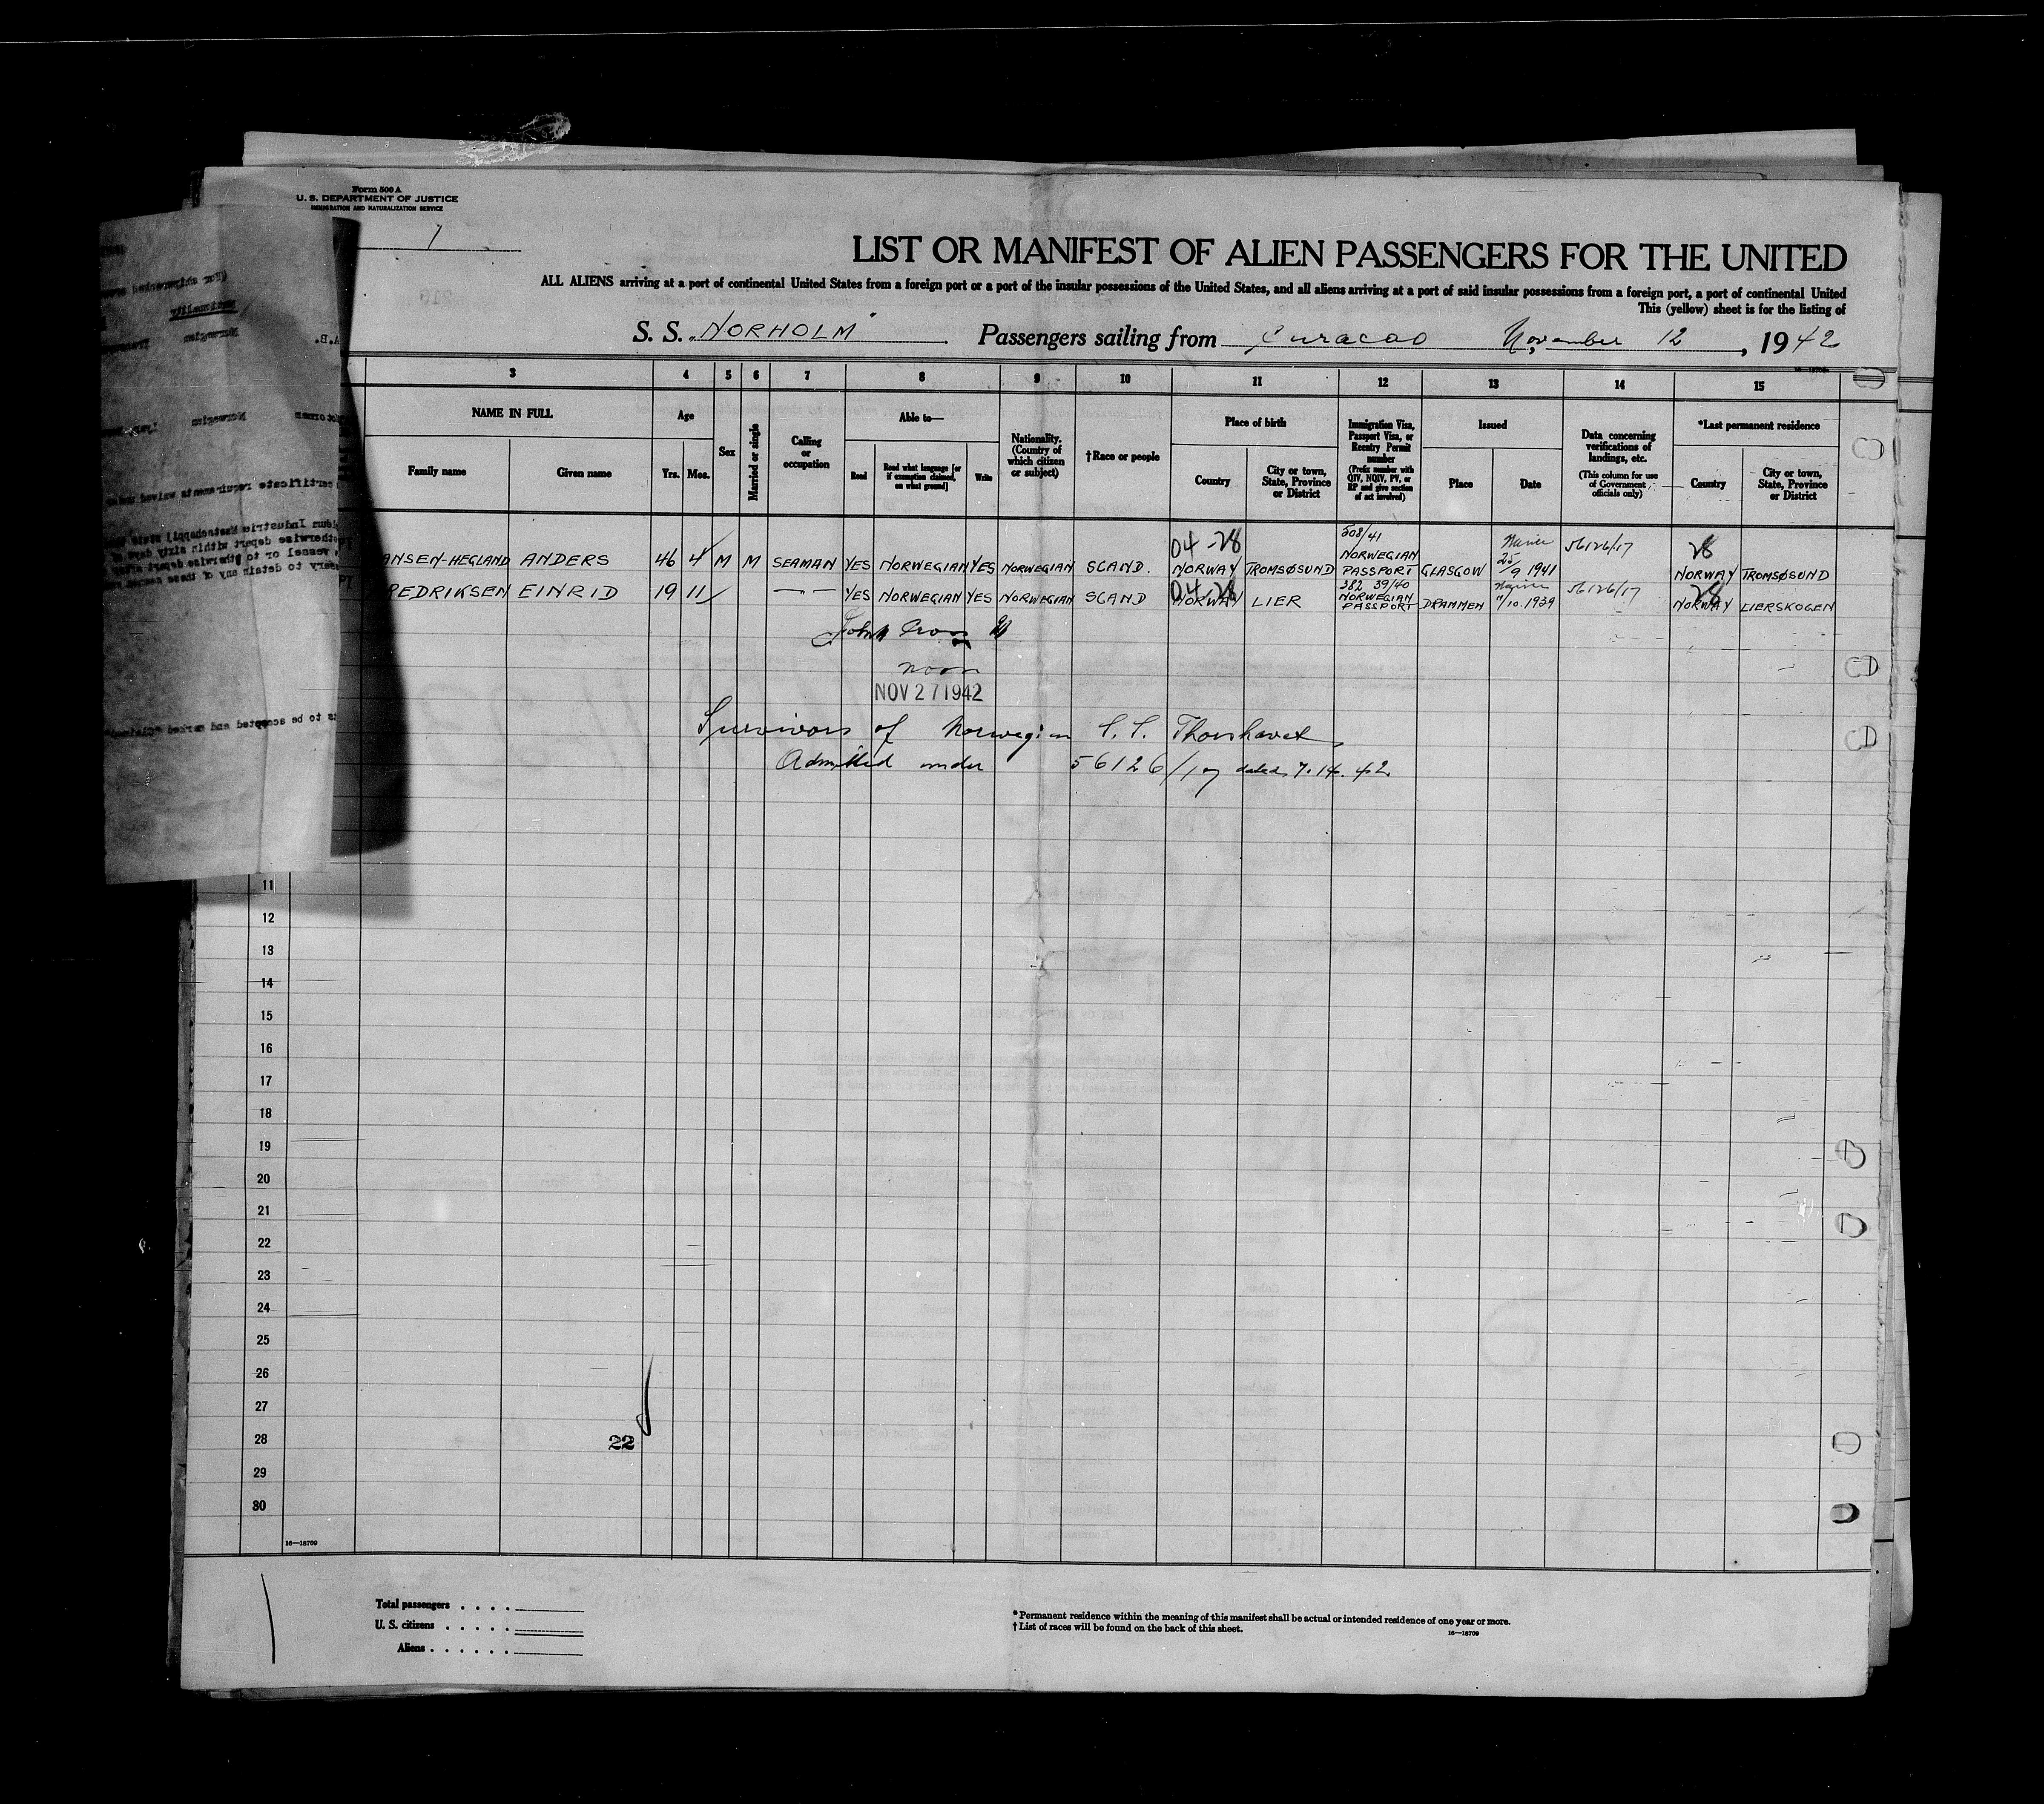 Form 500 A
U. S. DEPARTMENT OF JUSTICE
IMMIGRATION AND NATURALIZATION SERVICE
1
LIST OR MANIFEST OF ALIEN PASSENGERS FOR THE UNITED
ALL ALIENS arriving at a port of continental United States from a foreign port or a port of the insular possessions of the United States, and all aliens arriving at a port of said insular possessions from a foreign port, a port of continental United
This (yellow) sheet is for the listing of
S. S. "NORHOLM" Passengers sailing from Curacao November 12, 1942
3 4 5 6 7 8 9 10 11 12 13 14 15
NAME IN FULL Family name Given name
Age Yrs. Mos.
Sex
Married or single
Calling or occupation
Able to— Read Read what language [or if exemption claimed, on what ground] Write
Nationality. (Country of which citizen or subject)
†Race or people
Place of birth Country City or town, State, Province or District
Immigration Visa, Passport Visa, or Reentry Permit number (Prefix number with QIV, NQIV, PV, or RP and give section of act involved)
Issued Place Date
Data concerning verifications of landings, etc. (This column for use of Government officials only)
*Last permanent residence Country City or town, State, Province or District
ANSEN-HEGLAND ANDERS 46 4 M M SEAMAN YES NORWEGIAN YES NORWEGIAN SCAND. 04-28 NORWAY TROMSØSUND 508/41 NORWEGIAN PASSPORT GLASGOW 25/9 1941 56126/17 28 NORWAY TROMSØSUND
REDRIKSEN EINRID 19 11 — — YES NORWEGIAN YES NORWEGIAN SCAND 04-28 NORWAY LIER 382 39/40 NORWEGIAN PASSPORT DRAMMEN 11/10.1939 56126/17 28 NORWAY LIERSKOGEN
John
noon
NOV 27 1942
Survivors of Norwegian S.S. Thorshavet
Admitted under 56126/17 dated 7.14.42
11
12
13
14
15
16
17
18
19
20
21
22
23
24
25
26
27
28
22
29
30
16—18709
Total passengers
U. S. citizens
Aliens
*Permanent residence within the meaning of this manifest shall be actual or intended residence of one year or more.
†List of races will be found on the back of this sheet.
16—18709